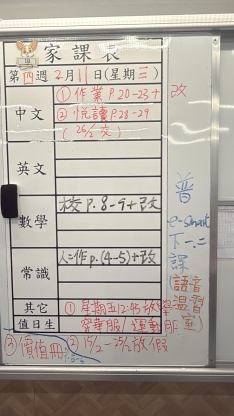 家課表
第四週 2月11日(星期三)
中文 ①作業P.20-23+改
②悅讀P.28-29
(26/2交)
英文
數學 校P.8-9+改
常識 人二作p.(4-5)+改
其它 ①星期五12:45放學
值日生 穿華服/運動服
③價值冊 ②15/2-25/2放假
普
e-smart
下一、二
課
(語音
溫習
室)